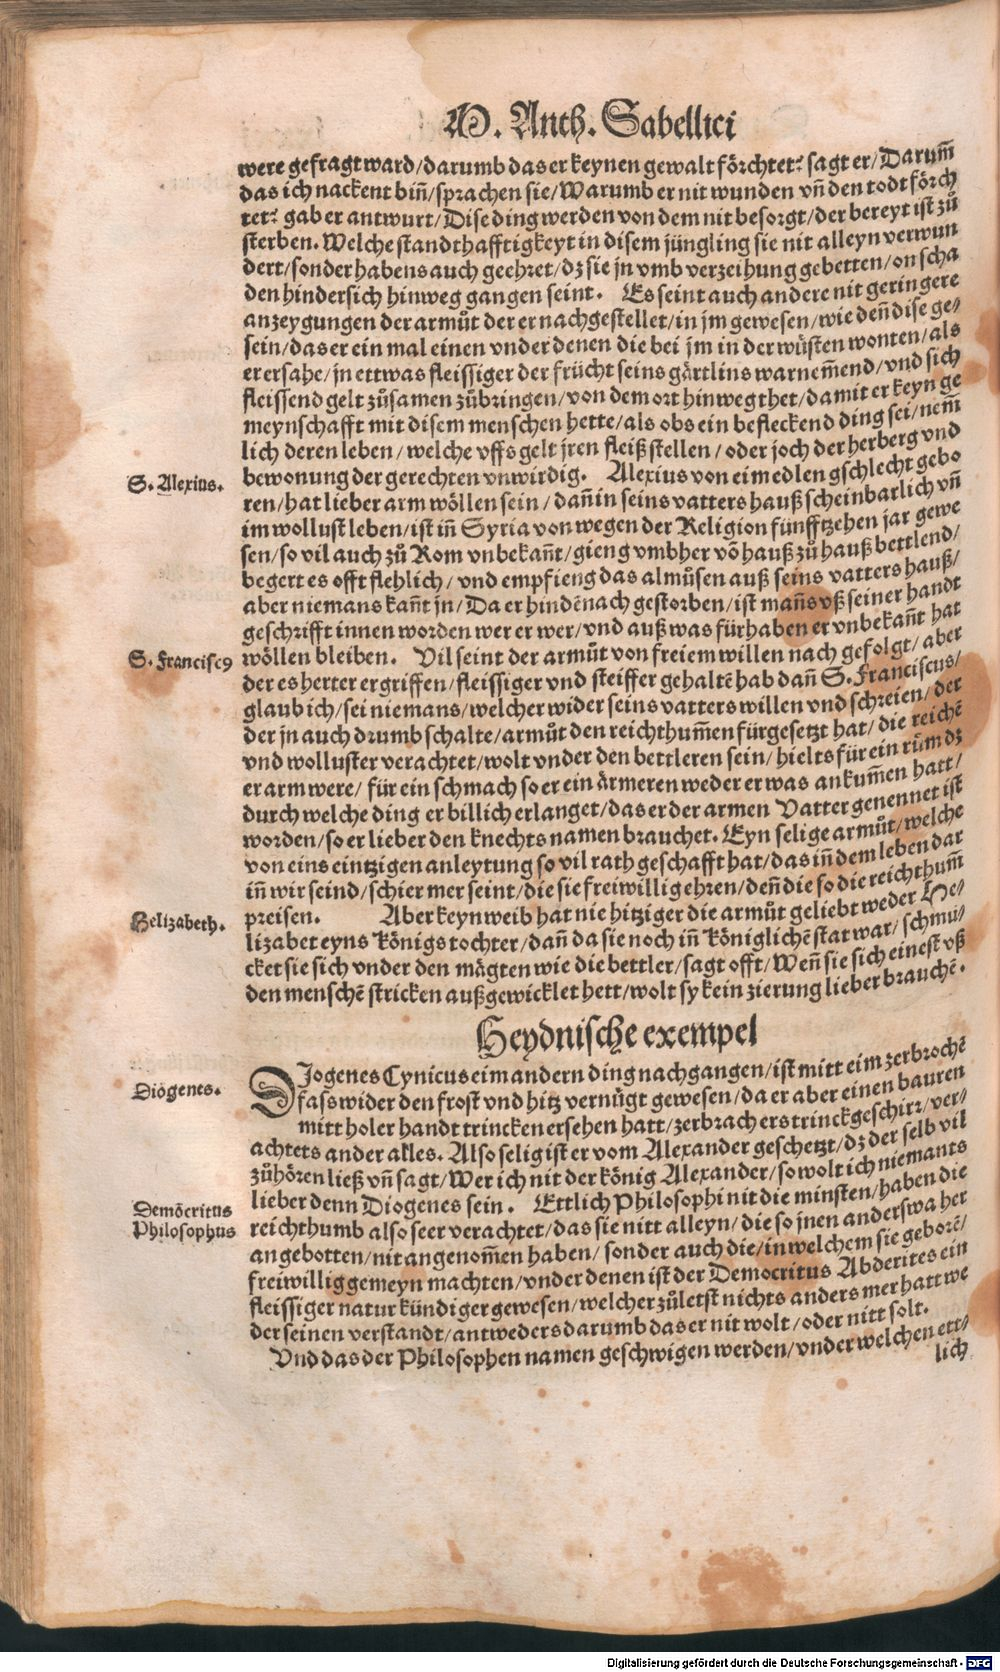 M. Anth. Sabellici
were gefragt ward/darumb das er keynen gewalt förchtet? sagt er/Darum̃
das ich nackent biñ/sprachen sie/Warumb er nit wunden vñ den todt förch
tet? gab er antwurt/Dise ding werden von dem nit besorgt/der bereyt ist zů
sterben. Welche standthafftigkeyt in disem jüngling sie nit alleyn verwun
dert/sonder habens auch geehret/dz sie jn vmb verzeihung gebetten/on scha
den hindersich hinweg gangen seint. Es seint auch andere nit geringere
anzeygungen der armůt der er nachgestellet/in jm gewesen/wie deñ dise ge⸗
sein/das er ein mal einen vnder denen die bei jm in der wüsten wonten/als
er ersahe/jn ettwas fleissiger der frücht seins gärtlins warnem̃end/vnd sich
fleissend gelt zůsamen zůbringen/von dem ort hinweg thet/damit er keyn ge
meynschafft mit disem menschen hette/als ob s ein befleckend ding sei/nem̃
lich deren leben/welche vffs gelt jren fleiß stellen/oder joch der herberg vnd
S. Alexius.
bewonung der gerechten vnwirdig. Alexius von eim edlen gschlecht gebo
ren/hat lieber arm wöllen sein/dañ in seins vatters hauß scheinbarlich vñ
im wollust leben/ist iñ Syria von wegen der Religion fünfftzehen jar gewe
sen/so vil auch zů Rom vnbekañt/gieng vmbher võ hauß zů hauß bettlend/
begert es offt flehlich/vnd empfieng das almůsen auß seins vatters hauß/
aber niemans kañt jn/Da er hindẽnach gestorben/ist mañs vß seiner handt
geschrifft innen worden wer er wer/vnd auß was fürhaben er vnbekañt hat
S. Franciscꝰ
wöllen bleiben. Vil seint der armůt von freiem willen nach gefolgt/aber
der es herter ergriffen/fleissiger vnd steiffer gehaltẽ hab dañ S. Franciscus/
glaub ich/sei niemans/welcher wider seins vatters willen vnd schreien/der
der jn auch drumb schalte/armůt den reichthum̃en fürgesetzt hat/die reichẽ
vnd wolluster verachtet/wolt vnder den bettleren sein/hielts für ein růmdz
er arm were/für ein schmach so er ein ärmeren weder er was ankum̃en hatt/
durch welche ding er billich erlanget/das er der armen Vatter genennet ist
worden/so er lieber den knechts namen brauchet. Eyn selige armůt/welche
von eins eintzigen anleytung so vil rath geschafft hat/das iñ dem leben dar
iñ wir seind/schier mer seint/die sie freiwillig ehren/deñ die so die reichthum̃
Helizabeth.
preisen. Aber keyn weib hat nie hitziger die armůt geliebt weder He⸗
lizabet eyns Königs tochter/dañ da sie noch iñ Königlichẽ stat war/schmu⸗
cket sie sich vnder den mägten wie die bettler/sagt offt/Weñ sie sich einest vß
den menschẽ stricken außgewicklet hett/wolt sy kein zierung lieber brauchẽ.
Heydnische exempel
Diogenes.
DJogenes Cynicus eim andern ding nachgangen/ist mitt eim zerbrochẽ
fass wider den frost vnd hitz vernůgt gewesen/da er aber einen bauren
mitt holer handt trincken ersehen hatt/zerbrach ers trinckgeschirr/ver⸗
achtets ander alles. Also selig ist er vom Alexander geschetzt/dz der selb vil
zůhören ließ vñ sagt/Wer ich nit der könig Alexander/so wolt ich niemants
Demöcritus
Philosophus
lieber denn Diogenes sein. Ettlich Philosophi nit die minsten/haben die
reichthumb also seer verachtet/das sie nitt alleyn/die so jnen anderswa her
angebotten/nit angenom̃en haben/sonder auch die/in welchem sie geborẽ/
freiwillig gemeyn machten/vnder denen ist der Democritus Abderites ein
fleissiger natur kündiger gewesen/welcher zůletst nichts anders mer hatt we
der seinen verstandt/antweders darumb das er nit wolt/oder nitt solt.
Vnd das der Philosophen namen geschwigen werden/vnder welchen ett⸗
lich
Digitalisierung gefördert durch die Deutsche Forschungsgemeinschaft - DFG